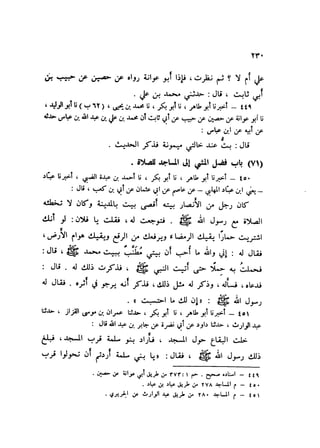 ٢٣٠
هل هو أبي أم لا ؟ فنظرت ، فإذا أبو عوانة رواه عن حسين عن حبيب بن
أبي ثابت ، فقال : حدثني محمد بن علي .
٤٤٩ – أخبرنا أبو طاهر ، نا أبو بكر ، نا محمد بن يحيى ، (٦٢ ب) نا أبو الوليد ،
نا أبو عوانة عن حصين عن حبيب بن أبي ثابت أن محمد بن علي بن عبد الله بن عباس حدثه
عن أبيه عن ابن عباس :
قال : بت عند خالتي ميمونة . فذكر الحديث .
(٧١) باب فضل المشي إلى المساجد للصلاة .
٤٥٠ – أخبرنا أبو طاهر ، نا أبو بكر ، نا أحمد بن عبدة الضبي ، أخبرنا عباد
– يعني ابن عباد المهلبي – عن عاصم عن أبي عثمان عن أبي بن كعب ، قال :
كان رجل من الأنصار بيته أقصى بيت بالمدينة ، وكان لا تخطئه
الصلاة مع رسول الله ﷺ . فتوجعت له ، فقلت : يا فلان لو أنك
اشتريت حماراً يقيك الرمضاء ويرفعك من الوقع ويقيك هوام الأرض ،
فقال له : إني والله ما أحب أن بيتي مطنب ببيت محمد ﷺ ، قال :
فحملت به حملاً حتى أتيت النبي ﷺ ، فذكرت ذلك له . قال :
فدعاه ، فسأله ، وذكر له مثل ذلك ، فذكر أنه يرجو في أثره . فقال له
رسول الله ﷺ : « إن لك ما احتسبت » .
٤٥١ – أخبرنا أبو طاهر ، نا أبو بكر ، نا عمران بن موسى القزاز ، حدثنا
عبد الوارث ، حدثنا داود عن أبي نضرة عن جابر بن عبد الله قال :
خلت البقاع حول المسجد ، فأراد بنو سلمة قرب المسجد ، فبلغ
ذلك رسول الله ﷺ ، فقال : يا بني سلمة أردتم أن تحولوا قرب
٤٤٩ – إسناده صحيح . حم ١ : ٣٧٣ من طريق أبي عوانة عن حصين .
٤٥٠ – م المساجد ٢٧٨ من طريق عباد بن عباد .
٤٥١ – م المساجد ٢٨٠ من طريق عبد الوارث عن الجريري .